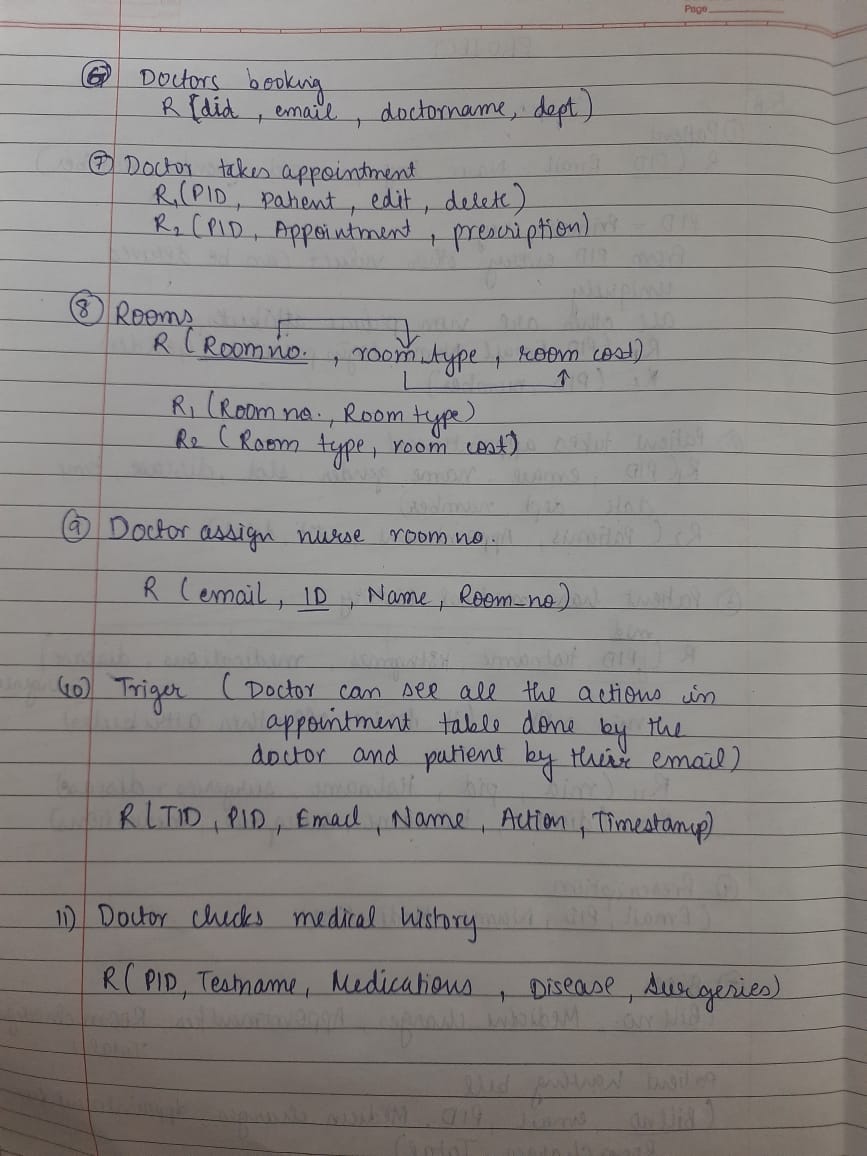 Page
⑥ Doctors booking
R [did , email , doctorname, dept)
⑦ Doctor takes appointment
R₁ (PID, patient , edit , delete)
R₂ (PID, Appointment , prescription)
⑧ Rooms
R (Room no. , room type , room cost)
R₁ (Room no., Room type)
R₂ (Room type, room cost)
⑨ Doctor assign nurse room no.
R (email, ID, Name, Room-no)
(10) Triger (Doctor can see all the actions in
appointment table done by the
doctor and patient by their email)
R (TID, PID, Email, Name, Action, Timestamp)
11) Doctor checks medical history
R( PID, Testname, Medications , Disease, Surgeries)